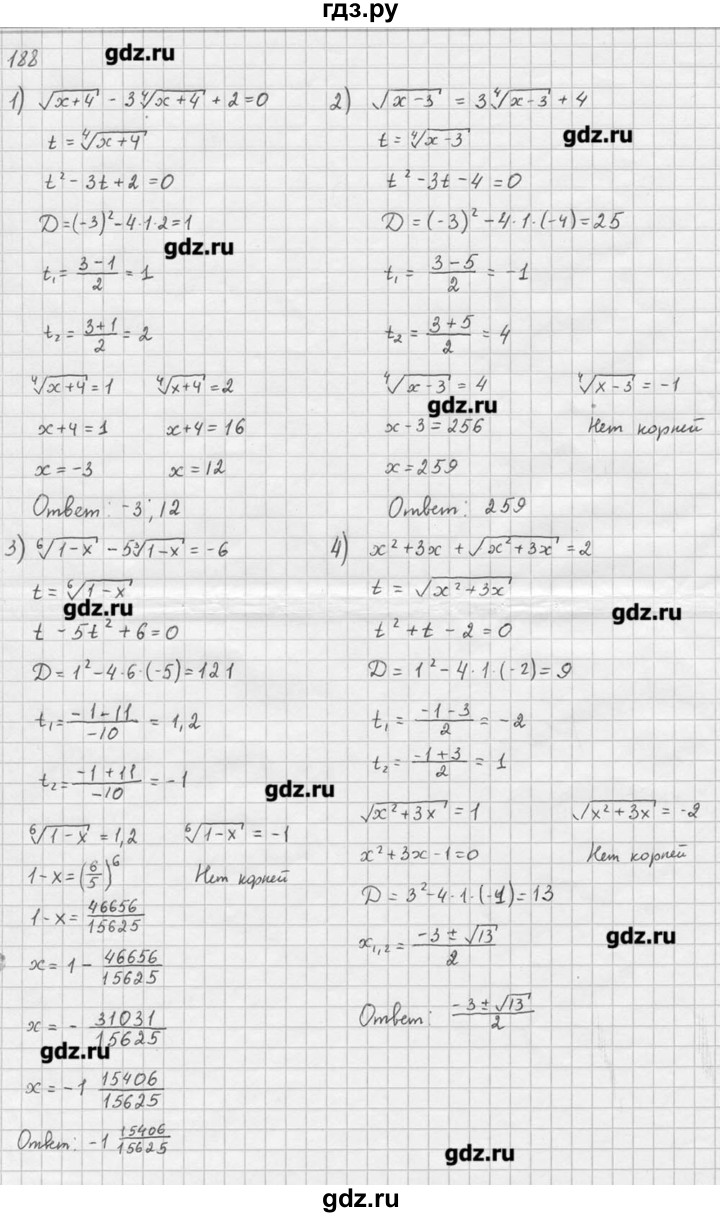 гдз.ру
gdz.ru
188
1) √(x+4) - 3⁴√(x+4) + 2 = 0
t = ⁴√(x+4)
t² - 3t + 2 = 0
D = (-3)² - 4·1·2 = 1
gdz.ru
t₁ = (3-1)/2 = 1
t₂ = (3+1)/2 = 2
⁴√(x+4) = 1 ⁴√(x+4) = 2
x+4 = 1 x+4 = 16
x = -3 x = 12
Ответ: -3; 12
2) √(x-3) = 3⁴√(x-3) + 4
gdz.ru
t = ⁴√(x-3)
t² - 3t - 4 = 0
D = (-3)² - 4·1·(-4) = 25
t₁ = (3-5)/2 = -1
t₂ = (3+5)/2 = 4
⁴√(x-3) = 4 ⁴√(x-3) = -1
gdz.ru
x-3 = 256 Нет корней
x = 259
Ответ: 259
3) ⁶√(1-x) - 5³√(1-x) = -6
t = ⁶√(1-x)
gdz.ru
t - 5t² + 6 = 0
D = 1² - 4·6·(-5) = 121
t₁ = (-1-11)/(-10) = 1,2
t₂ = (-1+11)/(-10) = -1
gdz.ru
⁶√(1-x) = 1,2 ⁶√(1-x) = -1
1-x = (6/5)⁶ Нет корней
1-x = 46656/15625
x = 1 - 46656/15625
x = - 31031/15625
gdz.ru
x = -1 15406/15625
Ответ: -1 15406/15625
4) x² + 3x + √(x²+3x) = 2
t = √(x²+3x)
gdz.ru
t² + t - 2 = 0
D = 1² - 4·1·(-2) = 9
t₁ = (-1-3)/2 = -2
t₂ = (-1+3)/2 = 1
√(x²+3x) = 1 √(x²+3x) = -2
x² + 3x - 1 = 0 Нет корней
D = 3² - 4·1·(-1) = 13
gdz.ru
x₁,₂ = (-3±√13)/2
Ответ: (-3±√13)/2
gdz.ru
gdz.ru